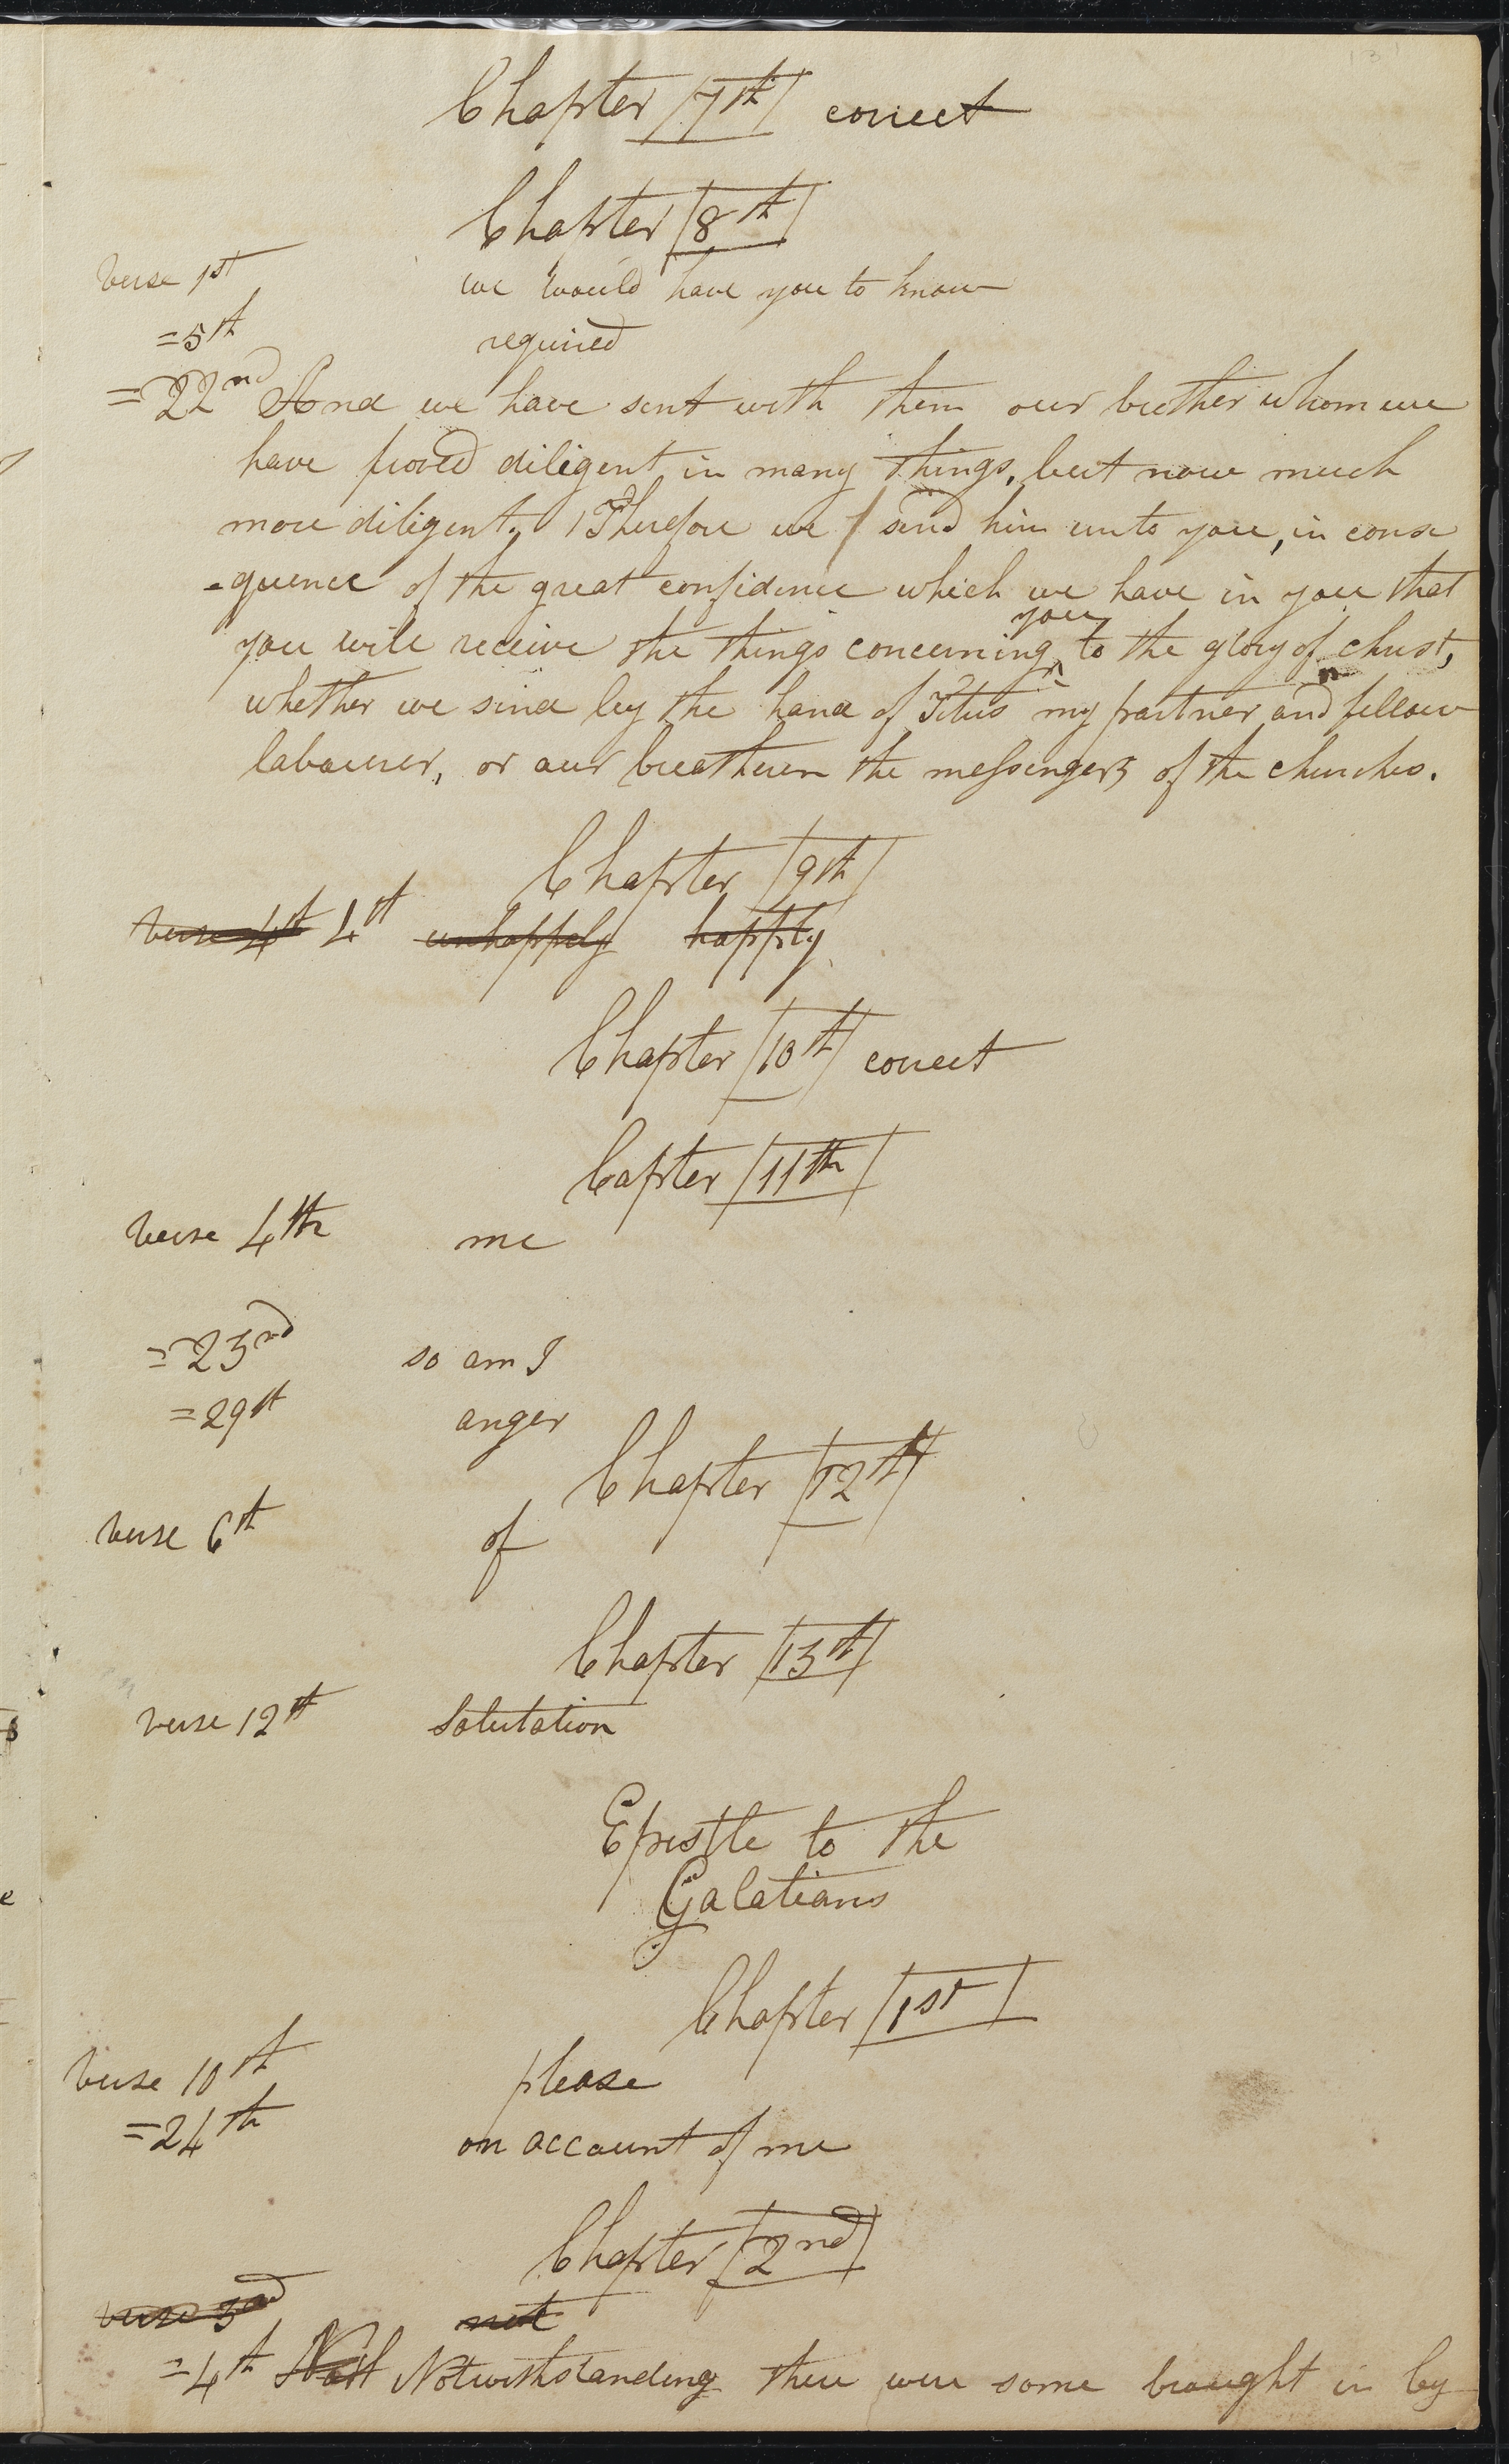 Chapter 7th correct
Chapter 8th
verse 1st we would have you to know
=5th required
=22nd And we have sent with them our brother whom we
have proved diligent in many things, but now much
more diligent. Therefore we send him unto you, in conse
-quence of the great confidence which we have in you that
you
you will receive the things concerning to the glory of christ,
whether we send by the hand of Titus my partner and fellow
labourer, or our breatheren the messengers of the churches.
Chapter 9th
verse 4th 4th unhappily happily
Chapter 10th correct
Capter 11th
verse 4th me
=23nd so am I
=29th anger
Chapter 12th
verse 6th of
Chapter 13th
verse 12th Salutation
Epistle to the
Galatians
Chapter 1st
verse 10th please
=24th on account of me
Chapter 2nd
verse 3rd not
=4th Notwithstanding there were some brought in by